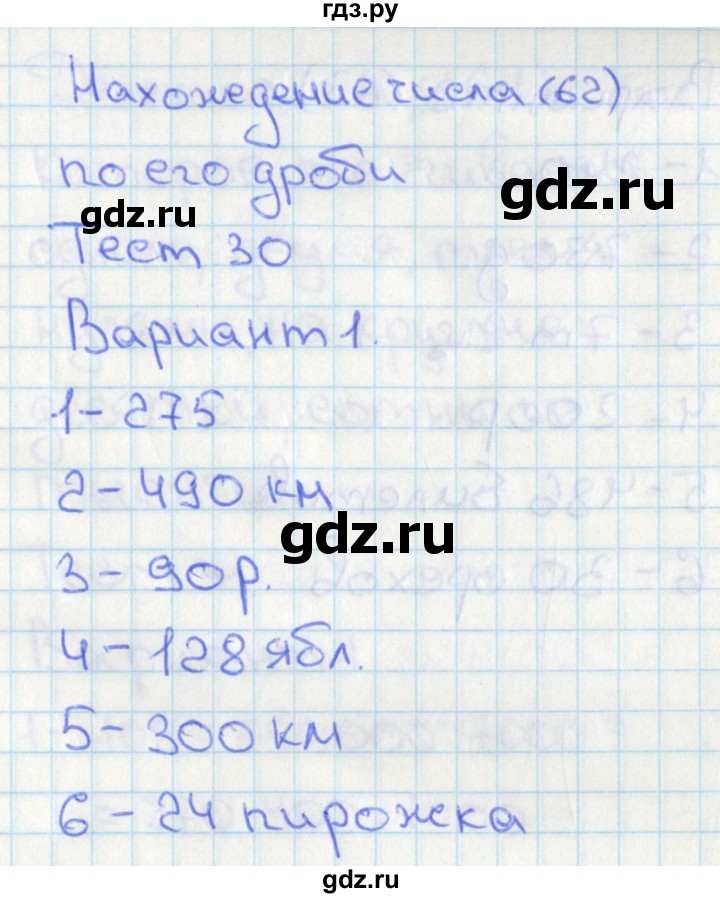 гдз.ру
Нахождение числа (62)
по его дроби
gdz.ru
gdz.ru
Тест 30
Вариант 1.
1 – 275
2 – 490 км
gdz.ru
3 – 90 р.
4 – 128 ябл.
5 – 300 км
6 – 24 пирожка
gdz.ru